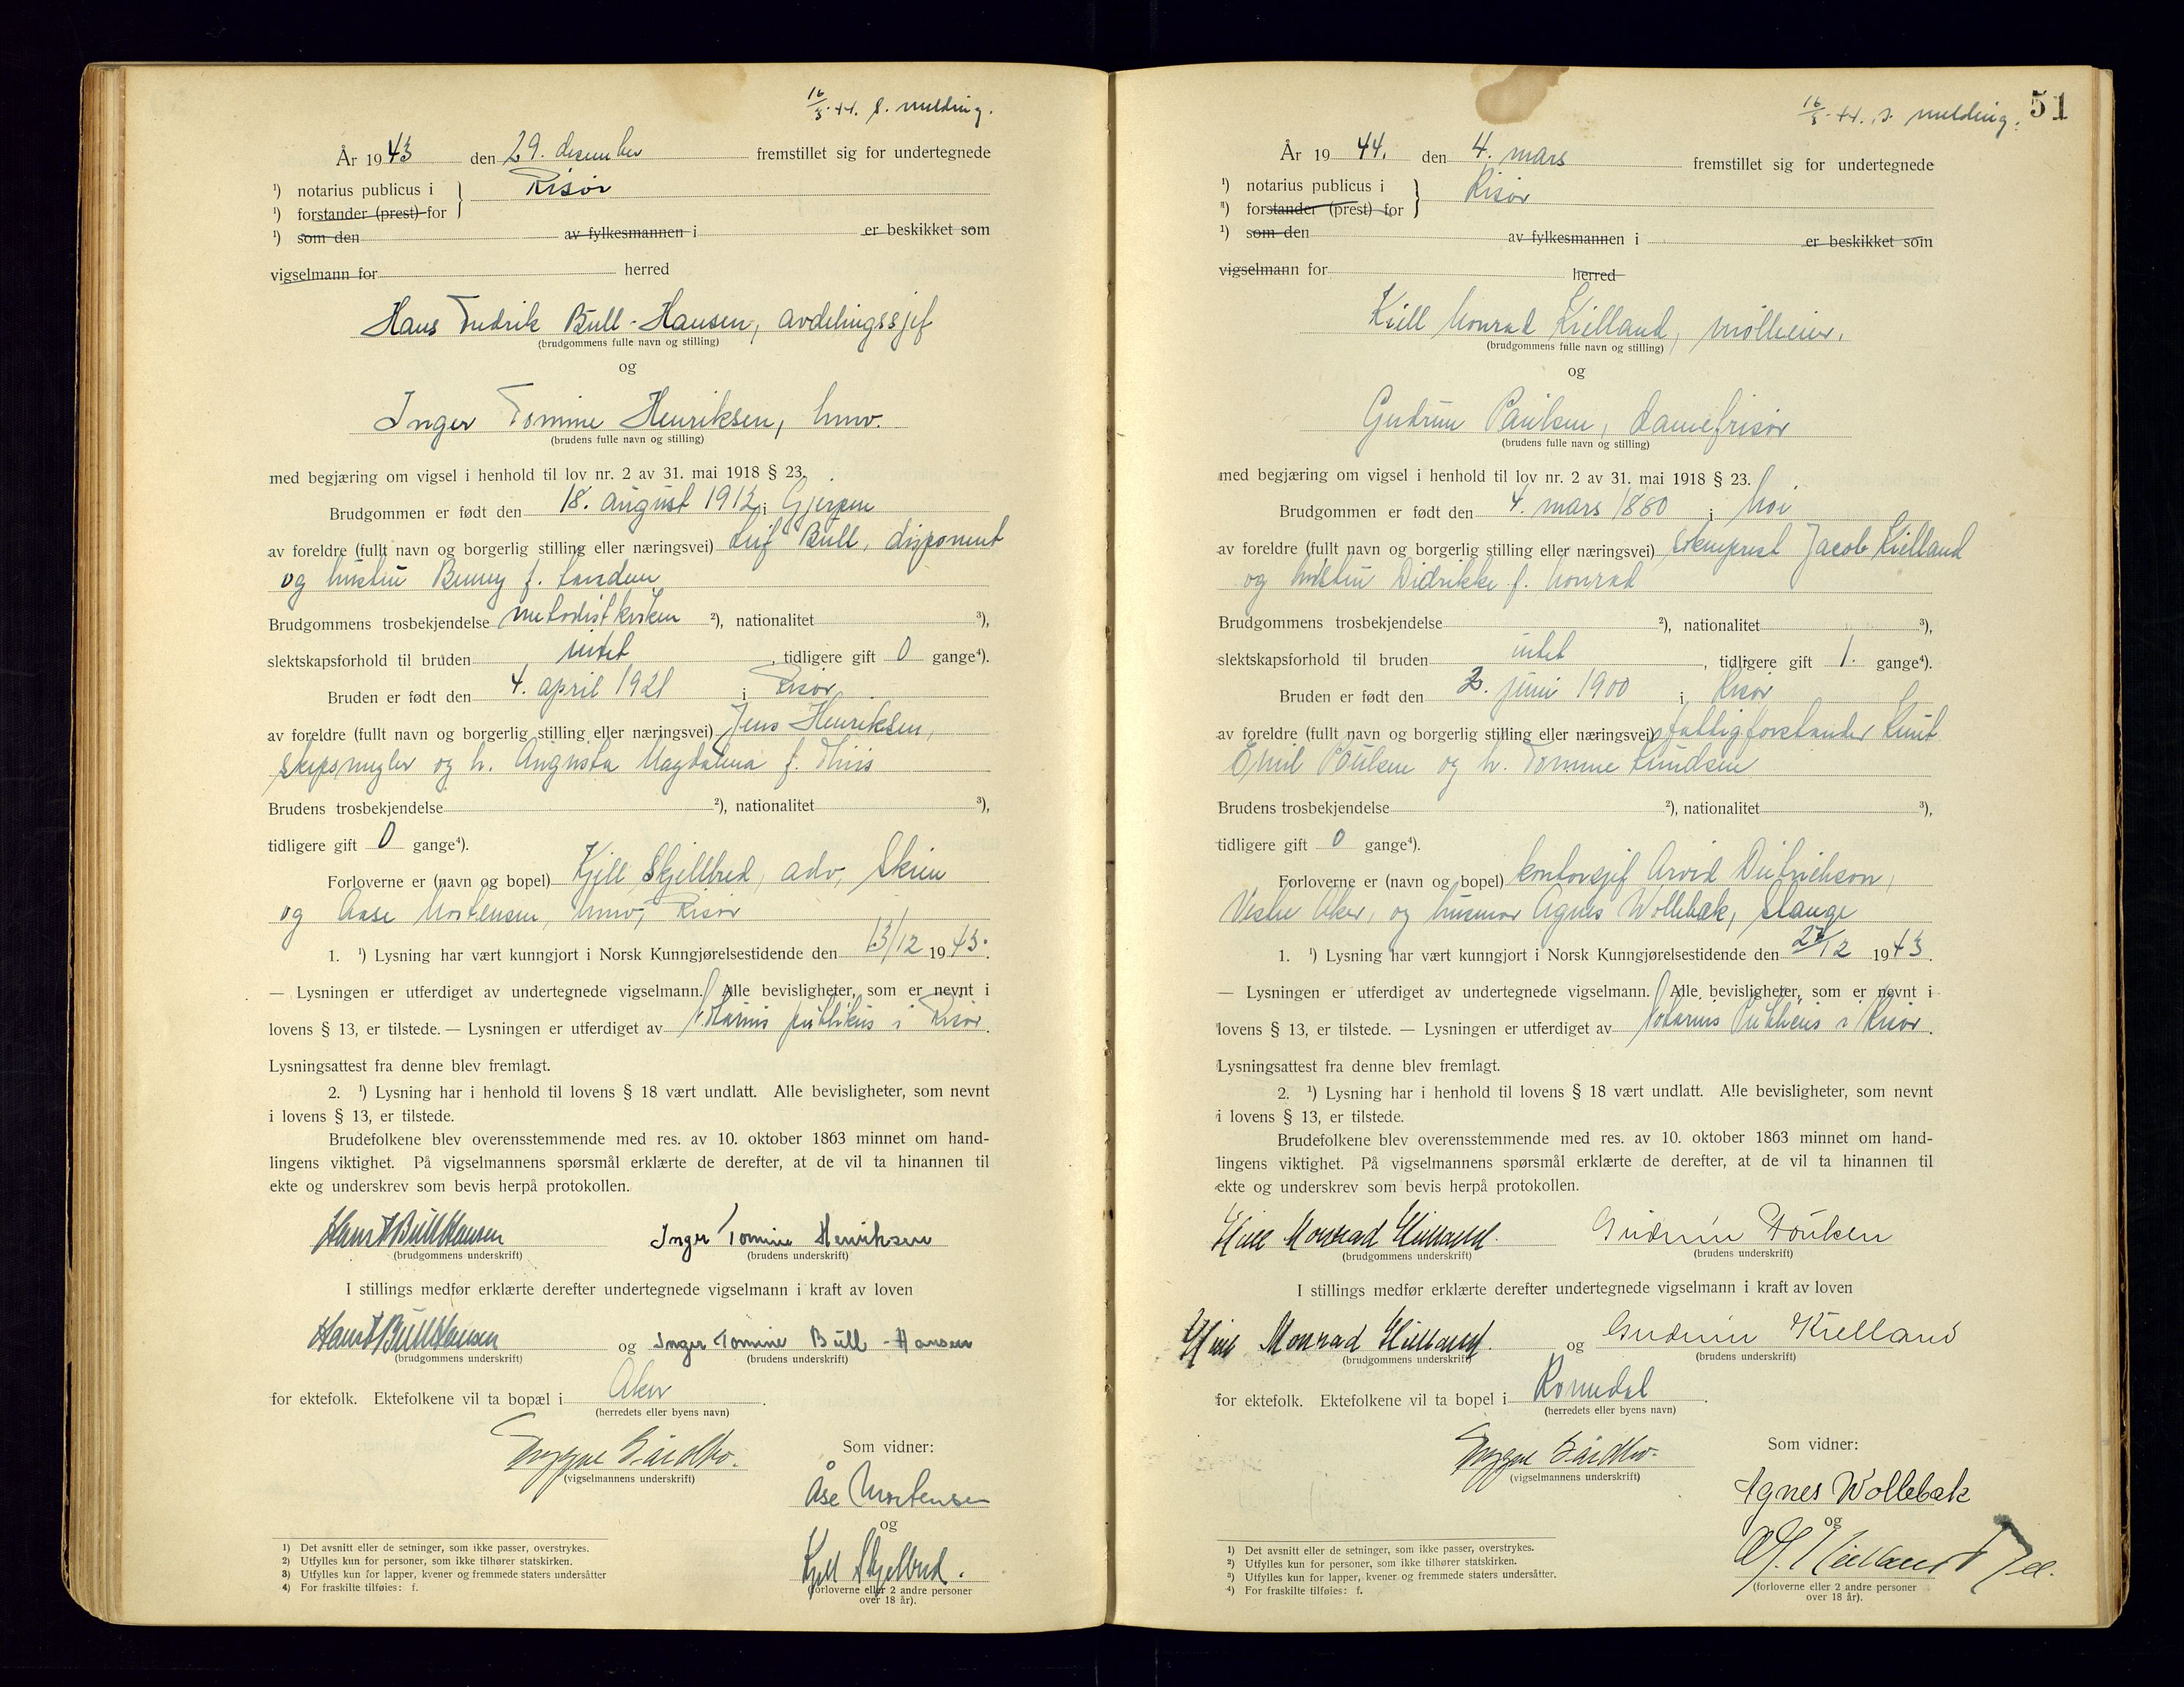 16/3 44. s. melding.
År 1943 den 29. desember fremstillet sig for undertegnede
¹) notarius publicus i } Risør
¹) forstander (prest) for
¹) som den av fylkesmannen i er beskikket som
vigselmann for herred
Hans Fredrik Bull-Hansen, avdelingssjef
(brudgommens fulle navn og stilling)
og
Inger Tomine Henriksen, hmv.
(brudens fulle navn og stilling)
med begjæring om vigsel i henhold til lov nr. 2 av 31. mai 1918 § 23.
Brudgommen er født den 18. august 1912 i Gjerpen
av foreldre (fullt navn og borgerlig stilling eller næringsvei) Leif Bull, disponent
og hustru Benny f.
Brudgommens trosbekjendelse metodistkirken ²), nationalitet ³),
slektskapsforhold til bruden intet, tidligere gift 0 gange⁴).
Bruden er født den 4. april 1921 i Risør
av foreldre (fullt navn og borgerlig stilling eller næringsvei) Jens Henriksen,
skipsmegler og h. Augusta Magdalena f. Thiis
Brudens trosbekjendelse ²), nationalitet ³),
tidligere gift 0 gange⁴).
Forloverne er (navn og bopel) Kjell Skjelbred, adv, Skien
og Aase Mortensen, hmv, Risør
1. ¹) Lysning har vært kunngjort i Norsk Kunngjørelsestidende den 13/12 1943.
— Lysningen er utferdiget av undertegnede vigselmann. Alle bevisligheter, som er nevnt i
lovens § 13, er tilstede. — Lysningen er utferdiget av Notarius publikus i Risør.
Lysningsattest fra denne blev fremlagt.
2. ¹) Lysning har i henhold til lovens § 18 vært undlatt. Alle bevisligheter, som nevnt
i lovens § 13, er tilstede.
Brudefolkene blev overensstemmende med res. av 10. oktober 1863 minnet om hand-
lingens viktighet. På vigselmannens spørsmål erklærte de derefter, at de vil ta hinannen til
ekte og underskrev som bevis herpå protokollen.
Hans F Bull Hansen Inger Tomine Henriksen
(brudgommens underskrift) (brudens underskrift)
I stillings medfør erklærte derefter undertegnede vigselmann i kraft av loven
Hans F Bull Hansen og Inger Tomine Bull-Hansen
(brudgommens underskrift) (brudens underskrift)
for ektefolk. Ektefolkene vil ta bopæl i Aker.
(herredets eller byens navn)
Trygve
(vigselmannens underskrift)
Som vidner:
Åse Mortensen
og
Kjell Skjelbred.
(forloverne eller 2 andre personer
over 18 år).
1) Det avsnitt eller de setninger, som ikke passer, overstrykes.
2) Utfylles kun for personer, som ikke tilhører statskirken.
3) Utfylles kun for lapper, kvener og fremmede staters undersåtter
4) For fraskilte tilføies: f.
16/3 44. s. melding.
51
År 1944. den 4. mars fremstillet sig for undertegnede
¹) notarius publicus i } Risør
¹) forstander (prest) for
¹) som den av fylkesmannen i er beskikket som
vigselmann for herred
Kiell Monrad Kielland, mølleeier.
(brudgommens fulle navn og stilling)
og
Gudrun Paulsen, damefrisør
(brudens fulle navn og stilling)
med begjæring om vigsel i henhold til lov nr. 2 av 31. mai 1918 § 23.
Brudgommen er født den 4. mars 1880 i Moi
av foreldre (fullt navn og borgerlig stilling eller næringsvei) sokneprest Jacob Kielland
og hustru Didrikke f. Monrad
Brudgommens trosbekjendelse ²), nationalitet ³),
slektskapsforhold til bruden intet, tidligere gift 1. gange⁴).
Bruden er født den 2. juni 1900 i Risør
av foreldre (fullt navn og borgerlig stilling eller næringsvei) fattigforstander Knut
Emil Paulsen og h. Tomine Knudsen
Brudens trosbekjendelse ²), nationalitet ³),
tidligere gift 0 gange⁴).
Forloverne er (navn og bopel) kontorsjef Arvid Dietrichson,
Vestre Aker, og husmor Agnes Wollebæk, Stange
1. ¹) Lysning har vært kunngjort i Norsk Kunngjørelsestidende den 27/12 1943.
— Lysningen er utferdiget av undertegnede vigselmann. Alle bevisligheter, som er nevnt i
lovens § 13, er tilstede. — Lysningen er utferdiget av Notarius Publicus i Risør.
Lysningsattest fra denne blev fremlagt.
2. ¹) Lysning har i henhold til lovens § 18 vært undlatt. Alle bevisligheter, som nevnt
i lovens § 13, er tilstede.
Brudefolkene blev overensstemmende med res. av 10. oktober 1863 minnet om hand-
lingens viktighet. På vigselmannens spørsmål erklærte de derefter, at de vil ta hinannen til
ekte og underskrev som bevis herpå protokollen.
Kiell Monrad Kielland. Gudrun Poulsen
(brudgommens underskrift) (brudens underskrift)
I stillings medfør erklærte derefter undertegnede vigselmann i kraft av loven
Kiell Monrad Kielland. og Gudrun Kielland
(brudgommens underskrift) (brudens underskrift)
for ektefolk. Ektefolkene vil ta bopel i Romedal.
(herredets eller byens navn)
Trygve
(vigselmannens underskrift)
Som vidner:
Agnes Wollebæk
og
Kielland
(forloverne eller 2 andre personer
over 18 år).
1) Det avsnitt eller de setninger, som ikke passer, overstrykes.
2) Utfylles kun for personer, som ikke tilhører statskirken.
3) Utfylles kun for lapper, kvener og fremmede staters undersåtter.
4) For fraskilte tilføies: f.